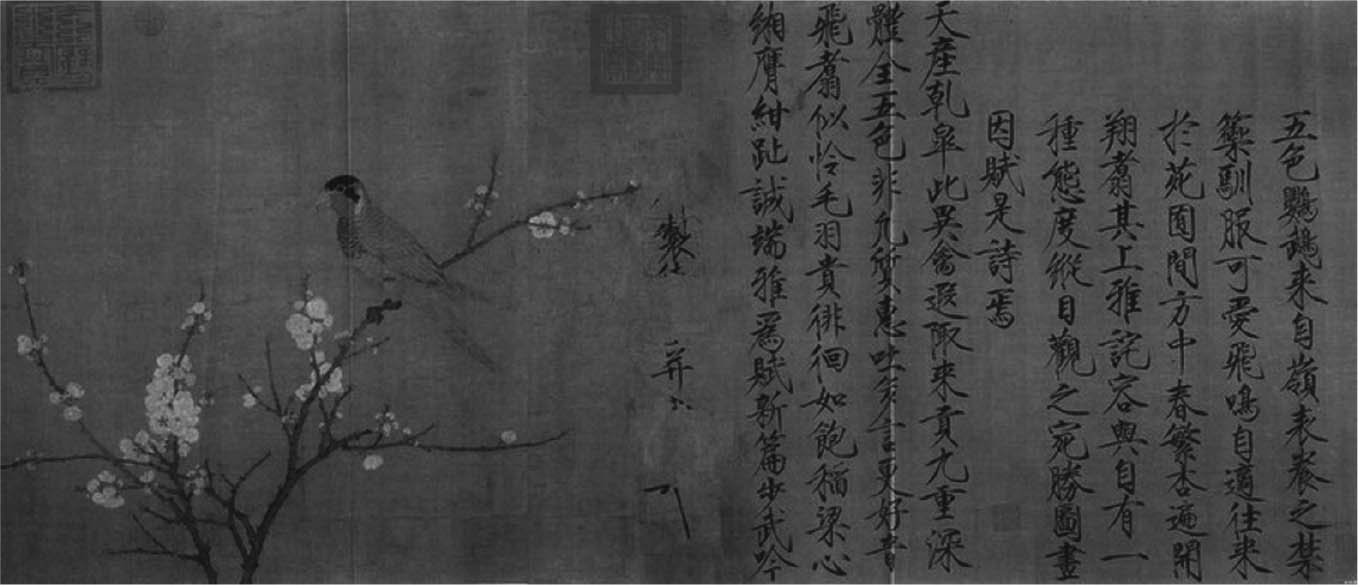 五色鸚鵡來自嶺表養之禁
籞馴服可愛飛鳴自適往來
於苑囿間方中春繁杏遍開
翔翥其上雅詫容與自有一
種態度縱目觀之宛勝圖畫
因賦是詩焉
天產乾皋此異禽遐陬來貢九重深
體全五色非凡質惠吐多言更好音
飛翥似怜毛羽貴徘徊如飽稻粱心
緗膺紺趾誠端雅爲賦新篇步武吟
製
并